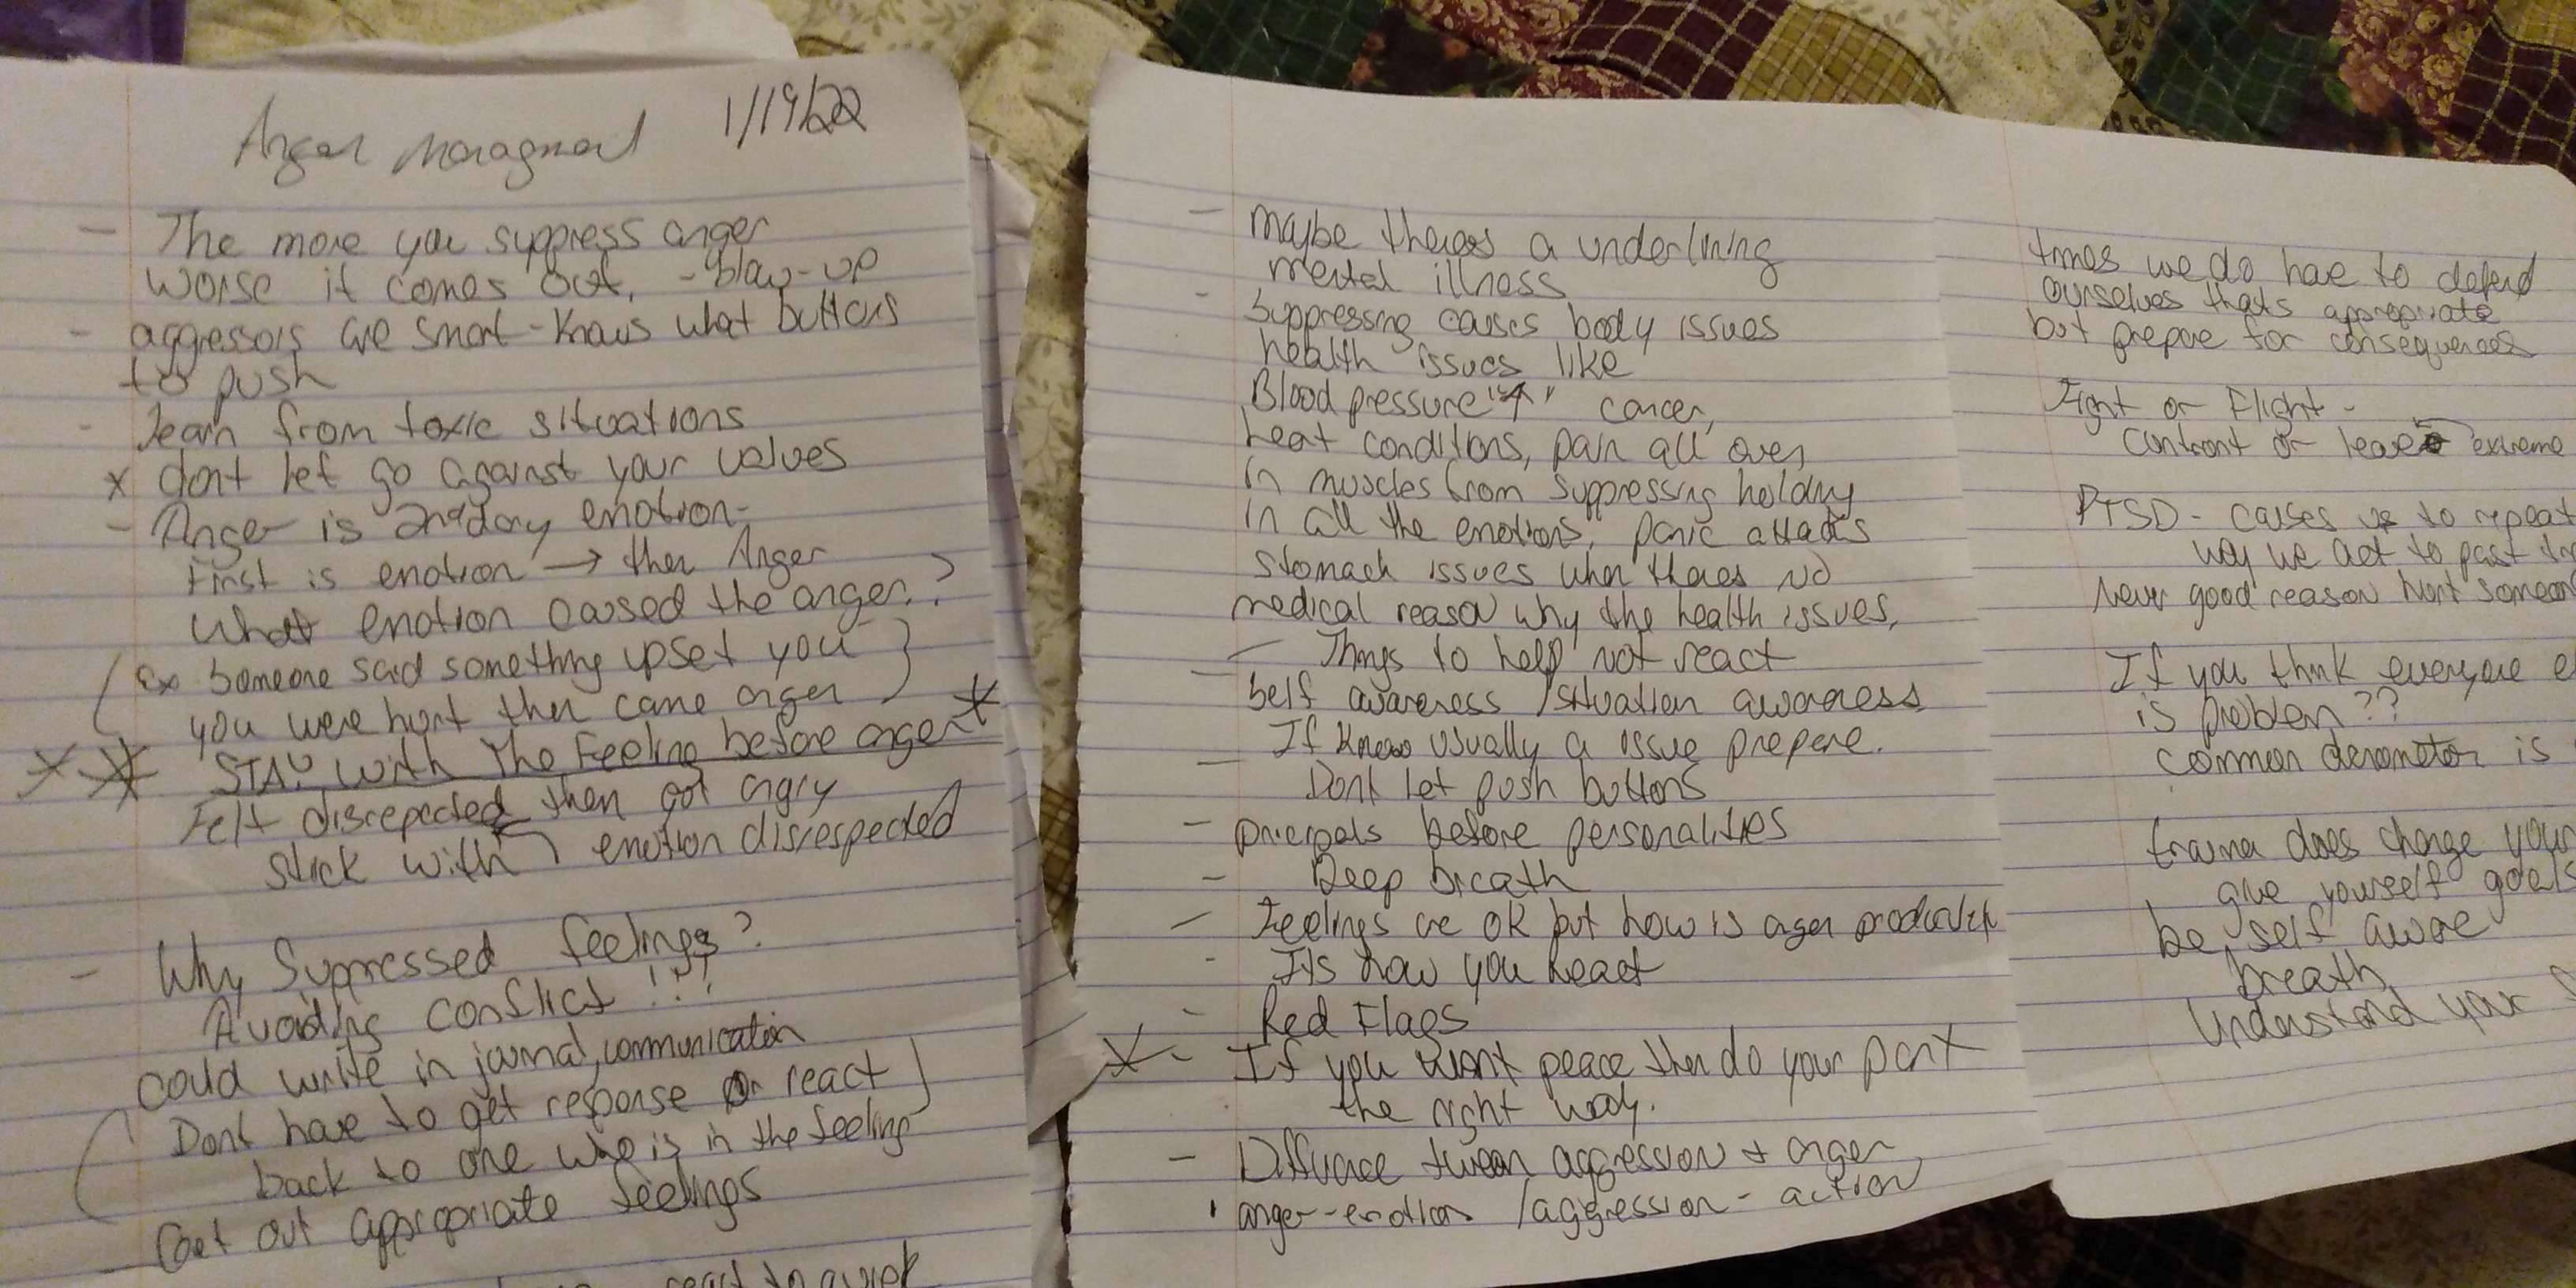 Anger Managment 1/19/22
- The more you suppress anger
worse it comes out, - blow-up
- aggressors are smart - knows what buttons
to push
- Learn from toxic situations
x dont let go against your values
- Anger is 2ndary emotion-
First is emotion → then Anger
What emotion caused the anger.?
(Ex Someone said something upset you }
you were hurt then came anger
** STAY with The Feeling before anger *
Felt discrepected then got angry
stick with emotion disrespected
- Why Suppressed feelings?
Avoiding conflict !!!
Could write in journal, communication
(Dont have to get response or react ]
back to one who is in the feeling
Get out appropriate feelings
react to quick
- maybe theres a underlining
mental illness
- Suppressing causes body issues
health issues like
Blood pressure "↑" cancer,
heat conditions, pain all over
in muscles from suppressing holding
in all the emotions, panic attacks
stomach issues when theres no
medical reason why the health issues,
- Things to help not react
- Self awareness / situation awareness
If know usually a issue prepare.
- Dont let push buttons
- principals before personalities
- Deep breath
- Feelings are ok but how is ager
- Its how you React
- Red Flags
* - If you want peace then do your part
the right way.
- Diffurace tween aggression + anger
' anger-emotion / aggression - action
times we do have to defend
ourselves thats appropriate
but prepare for consequences
Fight or Flight -
Confront or leave ← extreme
PTSD - causes us to repeat
way we act to past
Never good reason hurt
If you think everyone
is problem??
common denometor is
trauma does change your
give yourself goals
be self aware
breath
Understand your